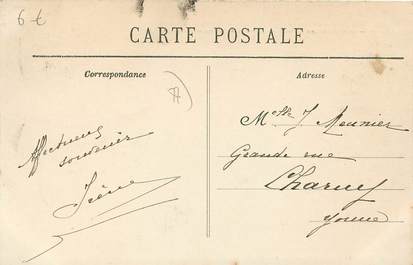 6 €
CARTE POSTALE
Correspondance
Adresse
Affectueux
souvenir
Irène
Melle J Meunier
Grande rue
Charny
Yonne